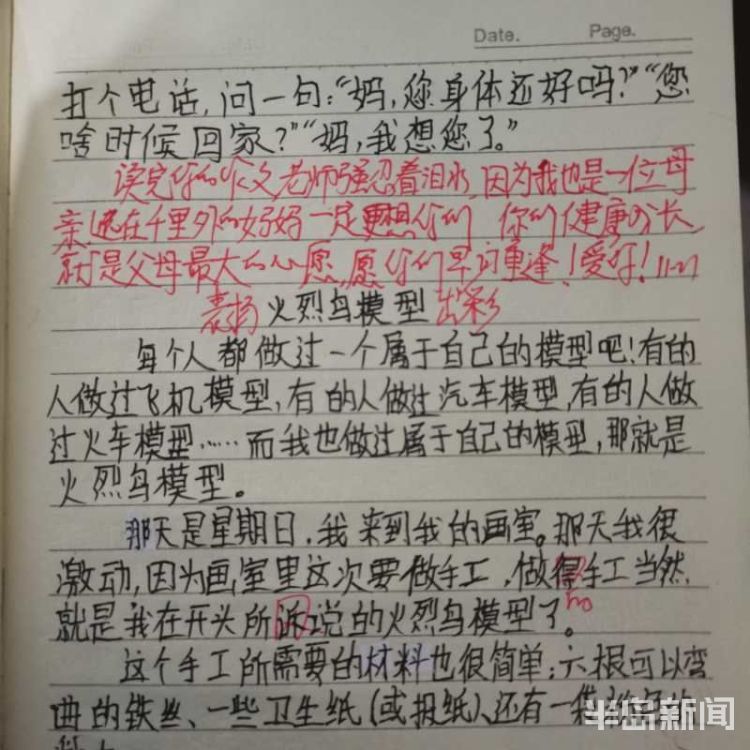 Date. Page.
打个电话,问一句:“妈,您身体还好吗?”“您
啥时候回家?”“妈,我想您了。”
读完你的作文老师强忍着泪水,因为我也是一位母
亲,远在千里外的妈妈一定更想你们 你们健康成长
就是父母最大的心愿,愿你们早日重逢!爱好!11.21
表扬 火烈鸟模型 出彩
每个人都做过一个属于自己的模型吧!有的
人做过飞机模型,有的人做过汽车模型,有的人做
过火车模型……而我也做过属于自己的模型,那就是
火烈鸟模型。
那天是星期日,我来到我的画室。那天我很
激动,因为画室里这次要做手工,做得手工当然
就是我在开头所诉说的火烈鸟模型了。
这个手工所需要的材料也很简单:六根可以弯
曲的铁丝、一些卫生纸(或报纸)、还有一
半岛新闻